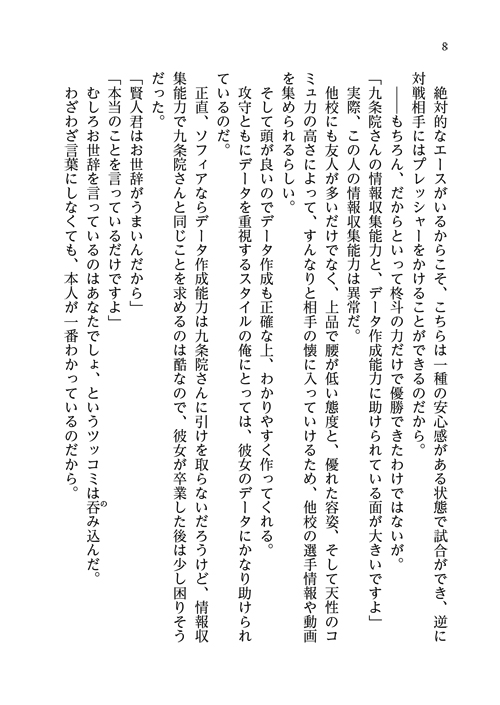 8
絶対的なエースがいるからこそ、こちらは一種の安心感がある状態で試合ができ、逆に
対戦相手にはプレッシャーをかけることができるのだから。
――もちろん、だからといって柊斗の力だけで優勝できたわけではないが。
「九条院さんの情報収集能力と、データ作成能力に助けられている面が大きいですよ」
実際、この人の情報収集能力は異常だ。
他校にも友人が多いだけでなく、上品で腰が低い態度と、優れた容姿、そして天性のコ
ミュ力の高さによって、すんなりと相手の懐に入っていけるため、他校の選手情報や動画
を集められるらしい。
そして頭が良いのでデータ作成も正確な上、わかりやすく作ってくれる。
攻守ともにデータを重視するスタイルの俺にとっては、彼女のデータにかなり助けられ
ているのだ。
正直、ソフィアならデータ作成能力は九条院さんに引けを取らないだろうけど、情報収
集能力で九条院さんと同じことを求めるのは酷なので、彼女が卒業した後は少し困りそう
だった。
「賢人君はお世辞がうまいんだから」
「本当のことを言っているだけですよ」
むしろお世辞を言っているのはあなたでしょ、というツッコミは呑のみ込んだ。
わざわざ言葉にしなくても、本人が一番わかっているのだから。